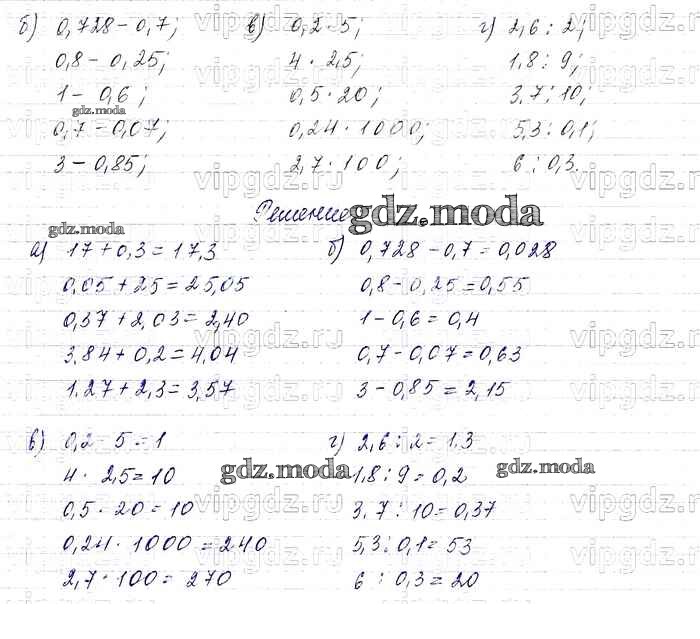 б) 0,728 - 0,7; в) 0,2 · 5; г) 2,6 : 2;
0,8 - 0,25; 4 · 2,5; 1,8 : 9;
1 - 0,6; 0,5 · 20; 3,7 : 10;
0,7 - 0,07; 0,24 · 1000; 5,3 : 0,1;
3 - 0,85; 2,7 · 100; 6 : 0,3.
Решение
а) 17 + 0,3 = 17,3 б) 0,728 - 0,7 = 0,028
0,05 + 25 = 25,05 0,8 - 0,25 = 0,55
0,37 + 2,03 = 2,40 1 - 0,6 = 0,4
3,84 + 0,2 = 4,04 0,7 - 0,07 = 0,63
1,27 + 2,3 = 3,57 3 - 0,85 = 2,15
в) 0,2 · 5 = 1 г) 2,6 : 2 = 1,3
4 · 2,5 = 10 1,8 : 9 = 0,2
0,5 · 20 = 10 3,7 : 10 = 0,37
0,24 · 1000 = 240 5,3 : 0,1 = 53
2,7 · 100 = 270 6 : 0,3 = 20
gdz.moda
gdz.moda
gdz.moda
gdz.moda
gdz.moda
vipgdz.ru